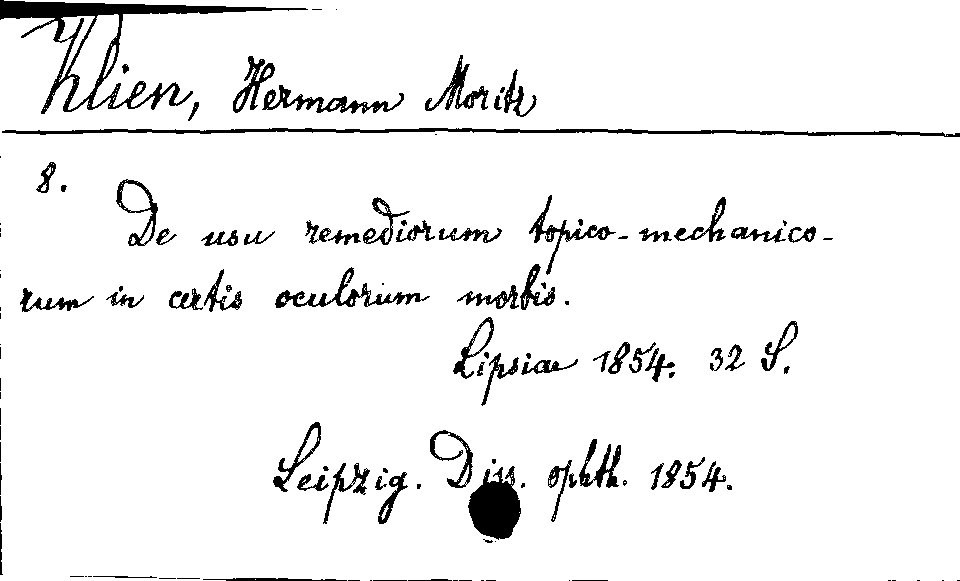 Klien, Hermann Moritz
8.
De usu remediorum topico-mechanico-
rum in certis oculorum morbis.
Lipsiae 1854. 32 S.
Leipzig. Diss. ophth. 1854.